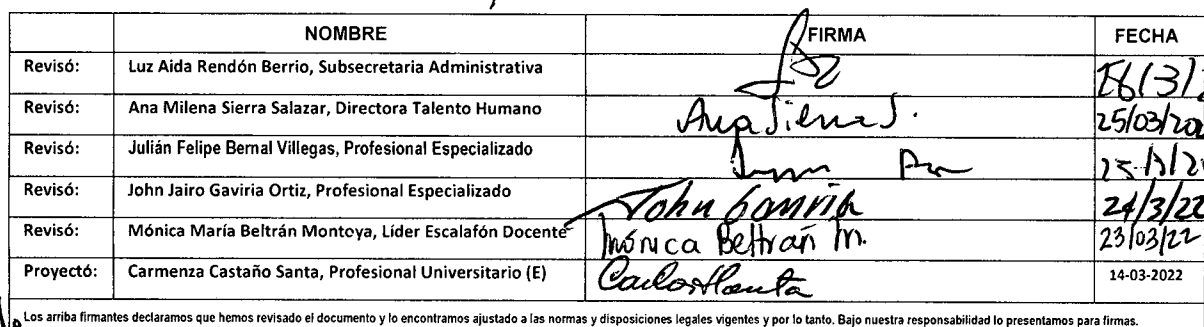 NOMBRE FIRMA FECHA
Revisó: Luz Aida Rendón Berrio, Subsecretaria Administrativa
Revisó: Ana Milena Sierra Salazar, Directora Talento Humano Ana Sierra S. 25/03/202
Revisó: Julián Felipe Bernal Villegas, Profesional Especializado
Revisó: John Jairo Gaviria Ortiz, Profesional Especializado John Gaviria 24/3/22
Revisó: Mónica María Beltrán Montoya, Líder Escalafón Docente Mónica Beltrán M. 23/03/22
Proyectó: Carmenza Castaño Santa, Profesional Universitario (E) 14-03-2022
Los arriba firmantes declaramos que hemos revisado el documento y lo encontramos ajustado a las normas y disposiciones legales vigentes y por lo tanto. Bajo nuestra responsabilidad lo presentamos para firmas.